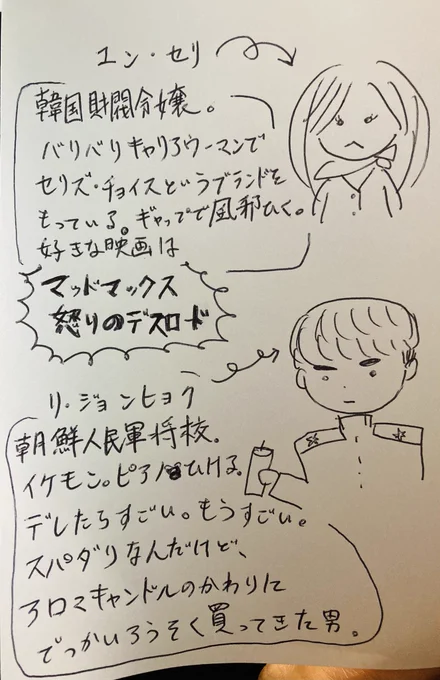 ユン・セリ
韓国財閥令嬢。
バリバリキャリアウーマンで
セリズ・チョイスというブランドを
もっている。ギャップで風邪ひく。
好きな映画は
マッドマックス
怒りのデスロード
リ・ジョンヒョク
朝鮮人民軍将校。
イケモン。ピアノひける。
デレしたらすごい。もうすごい。
スパダリなんだけど、
アロマキャンドルのかわりに
でっかいろうそく買ってきた男。